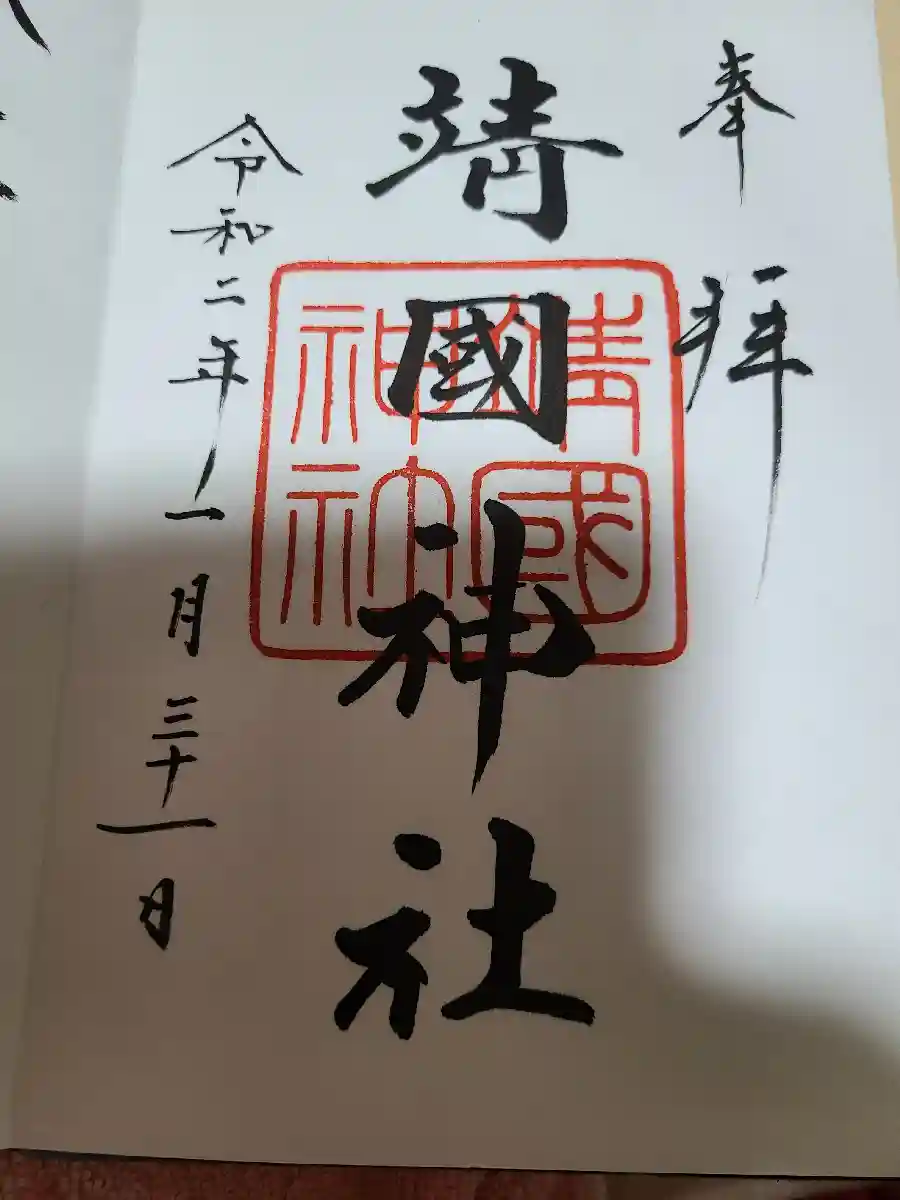 奉拝
靖國神社
令和二年一月三十一日
靖國
神社